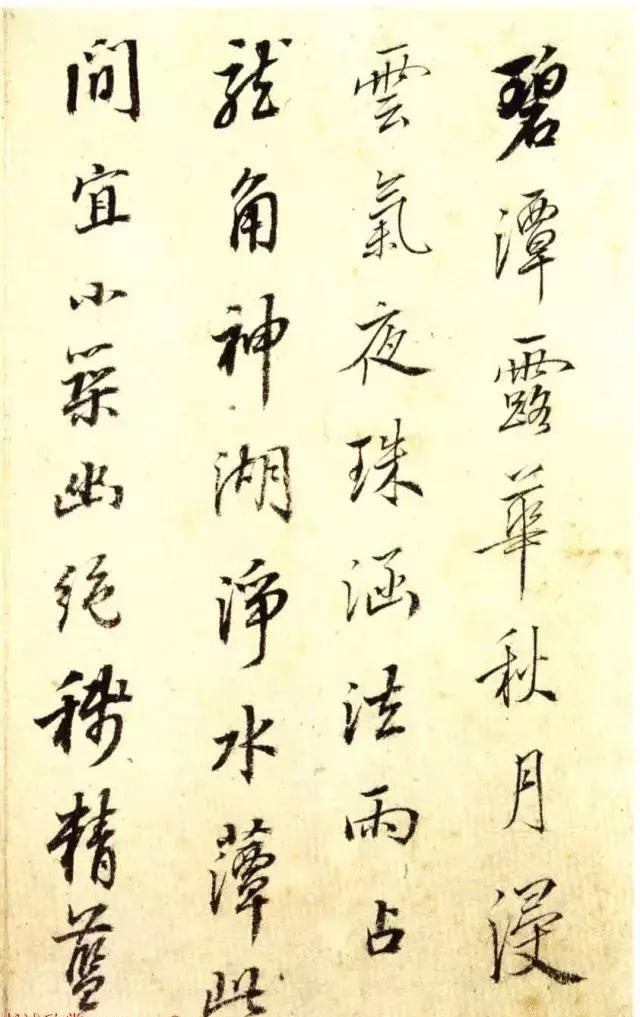 碧潭露華秋月浸
雲氣夜珠涵法雨占
龍角神湖淨水藫此
間宜小築幽絶稱精藍